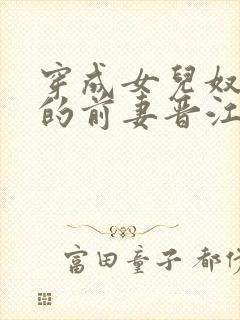 穿成女兒奴
的前妻晋江
富田童子 都